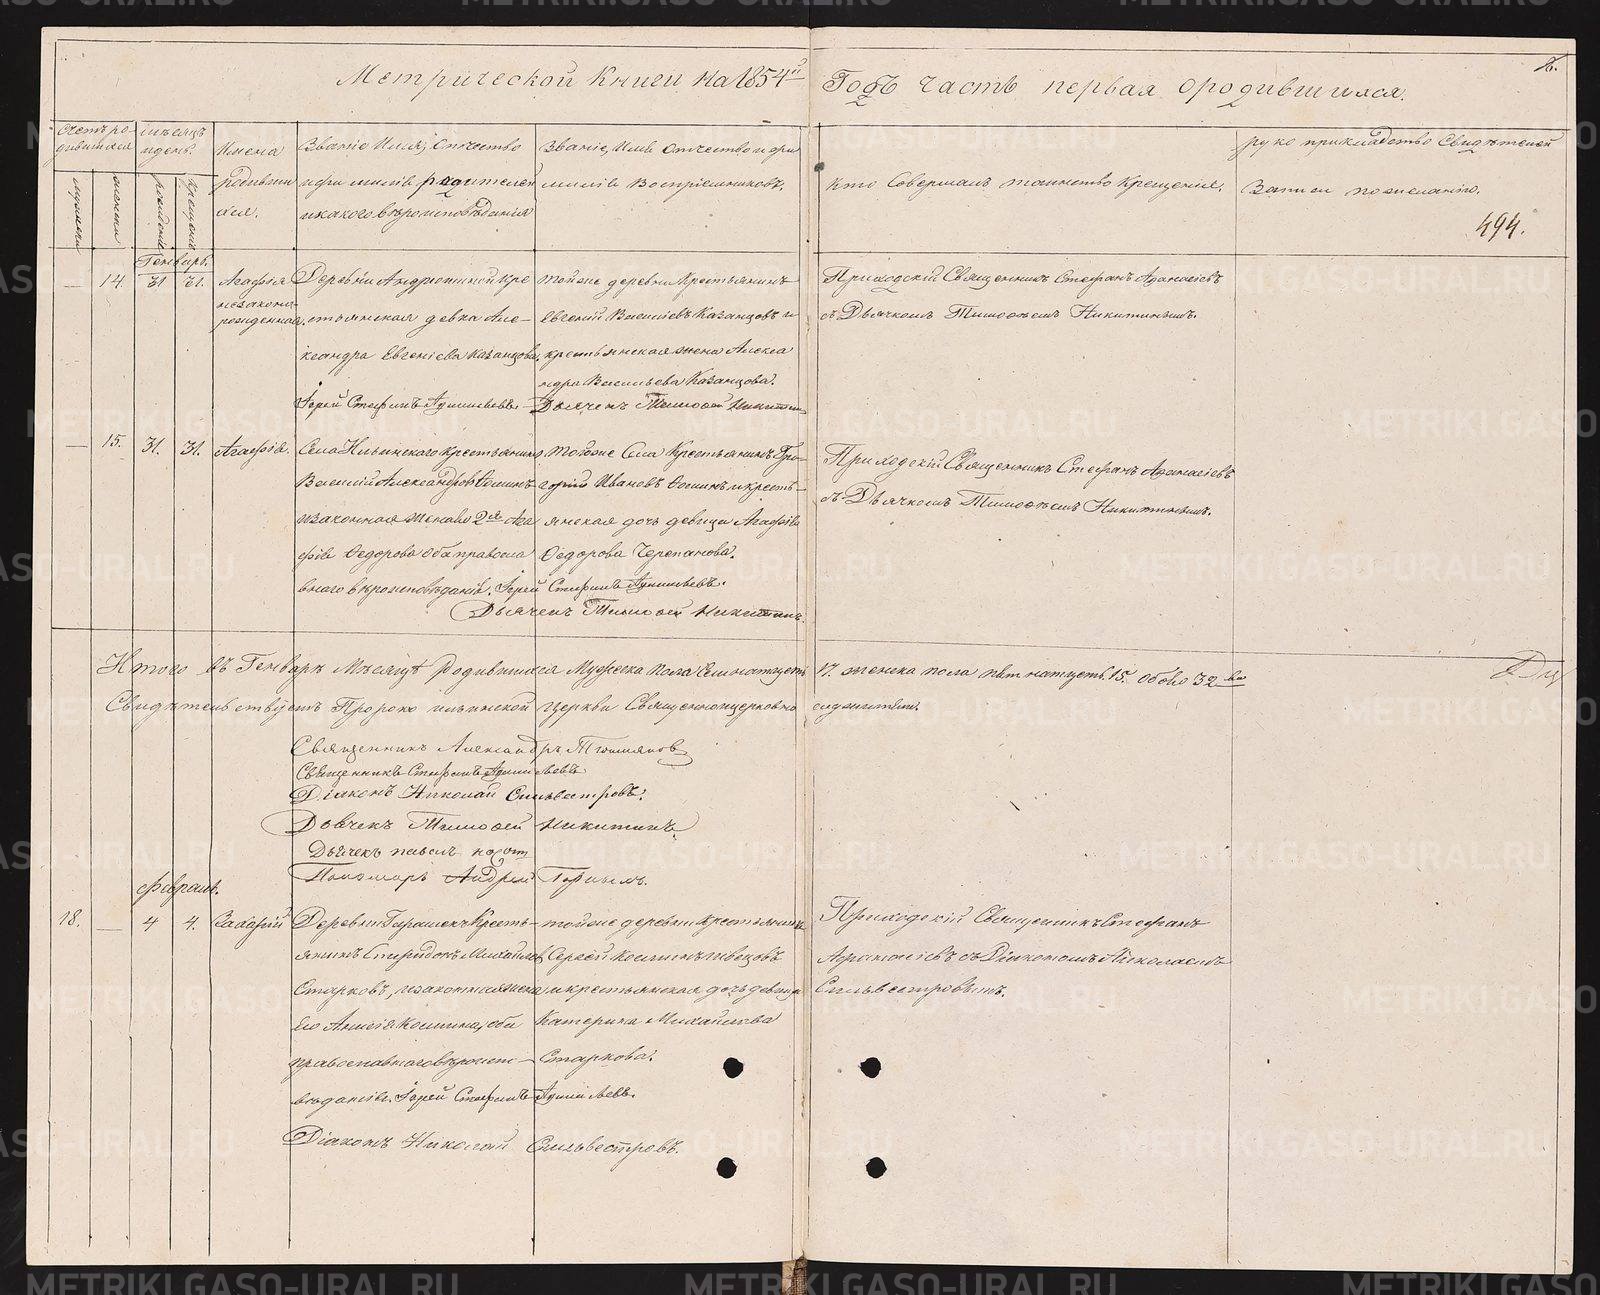 Метрической Книги на 1854й Годъ часть первая о родившихся.
494.
счетъ ро-
дившихся
мѣсяцъ
и день.
Имена
родивши
хся.
Званіе Имя, Отчество
и фамилія родителей
и какого вѣроисповѣданія
Званіе, Имя Отчество и фа
милія Воспріемниковъ.
Кто Совершалъ таинство Крещенія.
руко прикладство Свидѣтелей
Записи по желанію.
мужеска
женска
рожденіе
крещеніе
Генварь.
— 14. 31 31. Агафія
незаконно-
рожденная.
Деревни Андрюшиной кре
стьянская девка Але-
ксандра Евгеніева Казанцова,
Іерей Стефанъ
Тойже деревни Крестьянинъ
Евгеній Васильевъ Казанцовъ и
крестьянская жена Алекса
ндра Васильева Казанцова.
Дьячекъ Тимофей Никитинъ
Приходскій Священникъ Стефанъ Афанасіевъ
съ Дьячкомъ Тимофѣемъ Никитинымъ.
— 15. 31. 31. Агафія.
Села Ильинского крестьянинъ
Василий Александровъ
и законная жена во 2м Ага
фія Федорова оба правосла
вного вѣроисповѣданія. Іерей Стефанъ
Дьячекъ Тимофей Никитинъ.
Тойже Села Крестьянинъ Гри-
горій Ивановъ и кресть-
янская дочь девица Агафія
Федорова Черепанова.
Приходскій Священникъ Стефанъ Афанасіевъ
съ Дьячкомъ Тимофѣемъ Никитинымъ.
Итого въ Генварѣ Мѣсяцѣ Родившихся Мужеска пола Семнатцеть 17. женска пола пятнатцеть 15. обоего 32 ва
Свидѣтельствуетъ Пророко ильинской Церкви Священноцерковно служители.
Священникъ Александръ
Священникъ Стефанъ
Діаконъ Николай Сильвестровъ.
Дьячекъ Тимофей Никитинъ.
Дьячекъ павелъ
Пономарь Андрей
февраль.
18. — 4 4. Захарій
Деревни Кресть-
янинъ Спиридонъ Михайловъ
Старковъ, и законная жена
Его Анисія Козмина, оба
православного вѣроиспо-
вѣданія. Іерей Стефанъ
Діаконъ Николай Сильвестровъ.
тойже деревни крестьянинъ
Сергѣй Козминъ Швецовъ
и крестьянская дочь девица
Катерина Михайлова
Старкова.
Приходскій Священникъ Стефанъ
Афанасіевъ съ Діакономъ Николаемъ
Сильвестровымъ.
METRIKI.GASO-URAL.RU